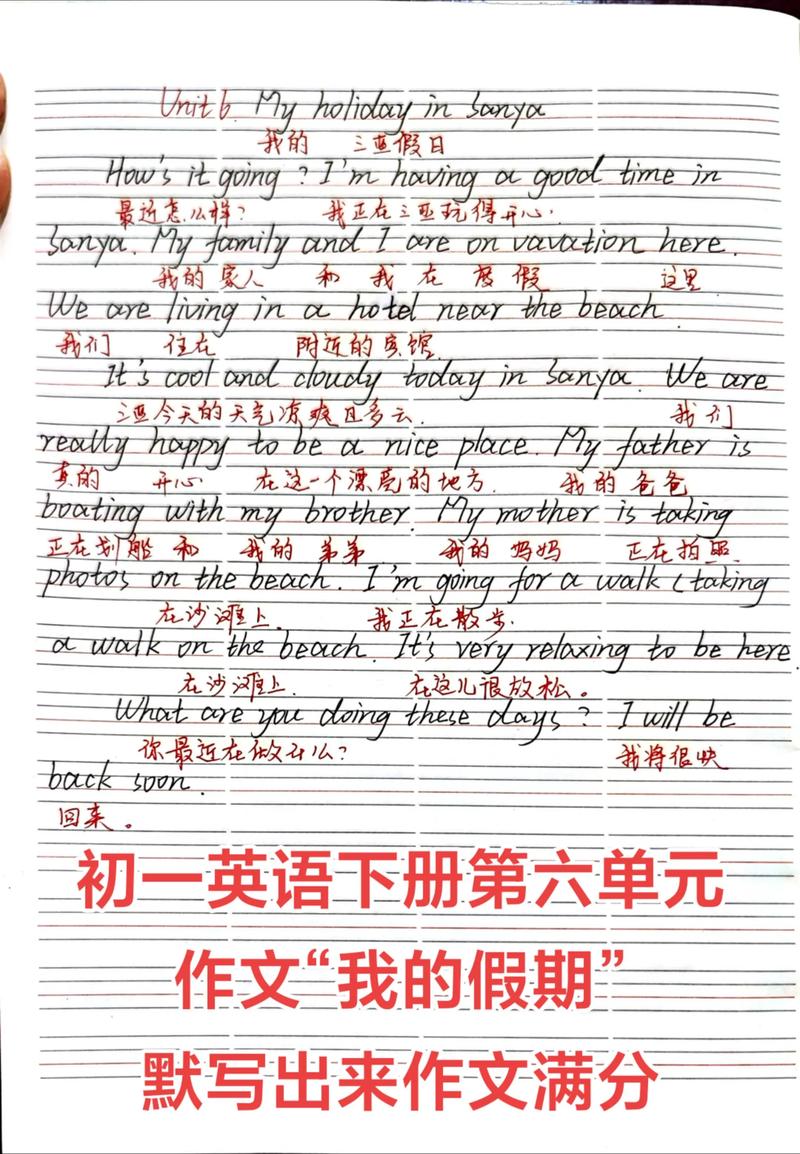 Unit 6. My holiday in Sanya
我的 三亚假日
How's it going? I'm having a good time in
最近怎么样? 我正在三亚玩得开心.
Sanya. My family and I are on vavation here.
我的家人 和 我 在 度假 这里
We are living in a hotel near the beach.
我们 住在 附近的宾馆.
It's cool and cloudy today in Sanya. We are
三亚今天的天气凉爽且多云. 我们
really happy to be a nice place. My father is
真的 开心 在这一个漂亮的地方. 我的爸爸
boating with my brother. My mother is taking
正在划船 和 我的 弟弟 我的 妈妈 正在拍照
photos on the beach. I'm going for a walk (taking
在沙滩上. 我正在散步.
a walk on the beach. It's very relaxing to be here.
在沙滩上. 在这儿很放松。
What are you doing these days? I will be
你最近在做什么? 我将很快
back soon.
回来。
初一英语下册第六单元
作文“我的假期”
默写出来作文满分